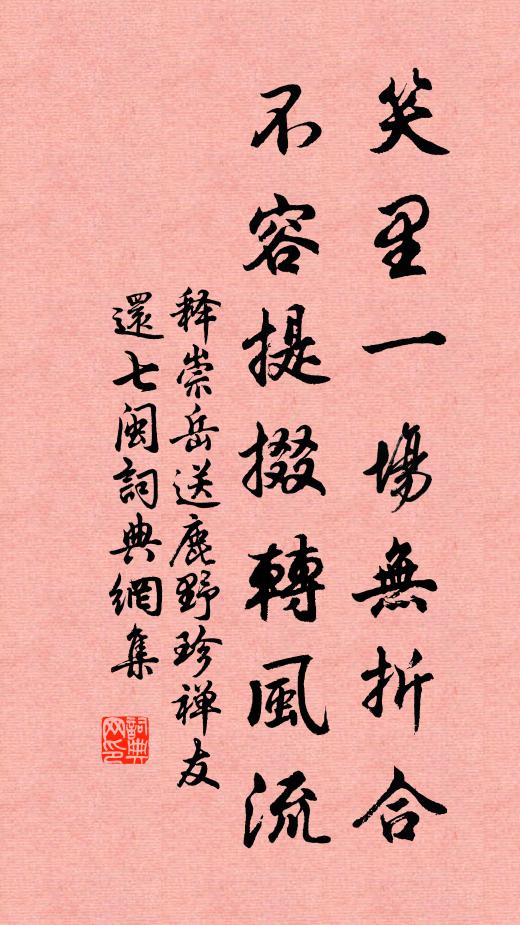 笑里一場無折合
不容提掇轉風流
释崇岳送鹿野珍禅友
還七闽詞典網集
詞典網印